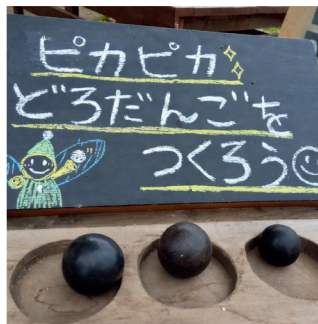 ピカピカ
どろだんごを
つくろう